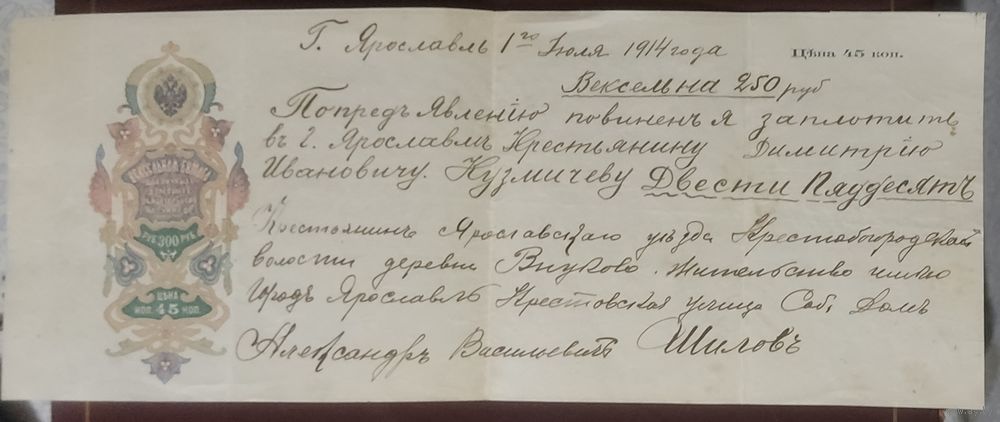 Г. Ярославль 1го Июля 1914 года
Цѣна 45 коп.
Вексель на 250 руб
По предъявленію повиненъ я заплотить
въ г. Ярославлѣ Крестьянину Димитрію
Ивановичу Кузмичеву Двести Пяддесятъ
Крестьянинъ Ярославскаго уезда Крестобогородской
волости деревни Внуково. Жительство имѣю
городъ Ярославль Крестовская улица Соб. Домъ
Александръ Васильевичъ Шиловъ
ВЕКСЕЛЬНАЯ БУМАГА
РУБ 300 РУБ.
ЦѢНА
КОП. 45 КОП.